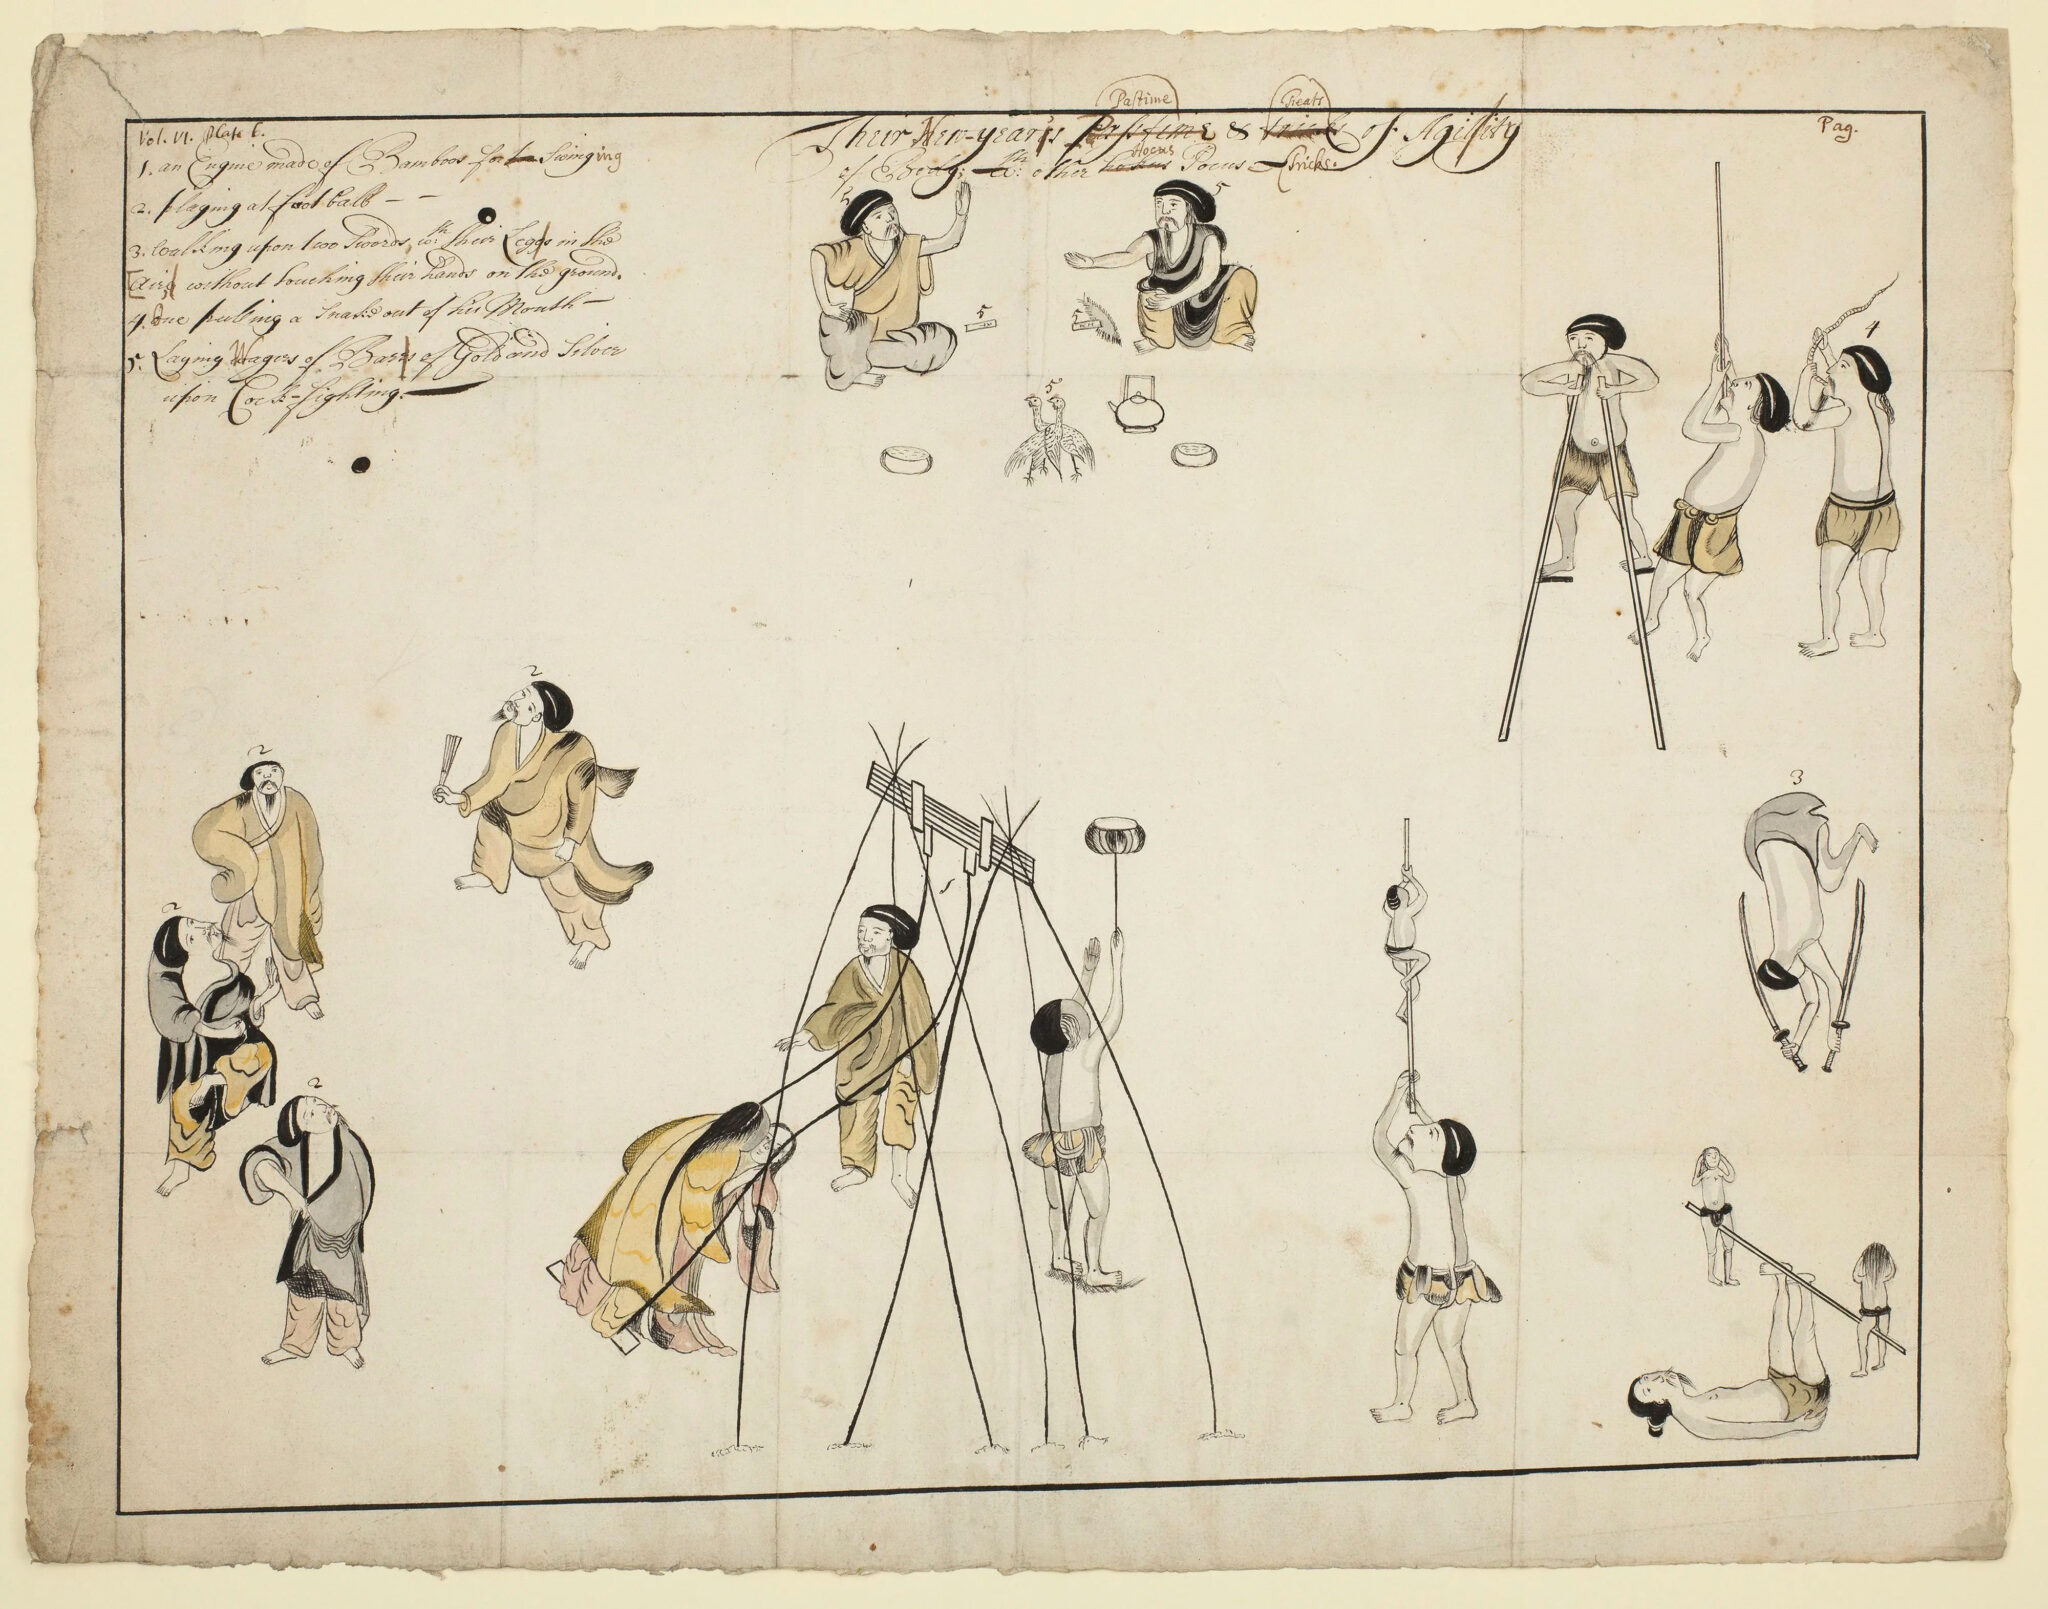 Vol. VI. Plate 6.
1. an Engine made of Bamboos for Swinging
2. playing at football – –
3. walking upon two Swords, wth. their Legs in the
Air, without touching their hands on the ground.
4. One pulling a Snake out of his Mouth –
5. Laying Wagers of Barrs of Gold and Silver
upon Cock-fighting.
Pastime Feats
Their New-year's & of Agility
Hocus
of Body; other Pocus Tricks.
Pag.
5
5
5
5
5
4
2
2
2
2
3